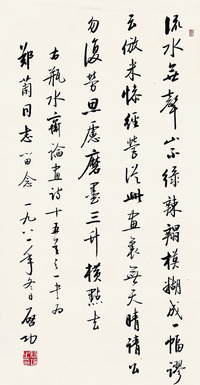 流水無聲山不綠辣翻模糊成一幅謬
云倣米慘經營從此畫裏無天晴請公
勿復勞思慮磨墨三升橫點去
古瓶水齋論畫詩十五首之一書為
鄭蘭同志留念 一九八二年冬日 啟功